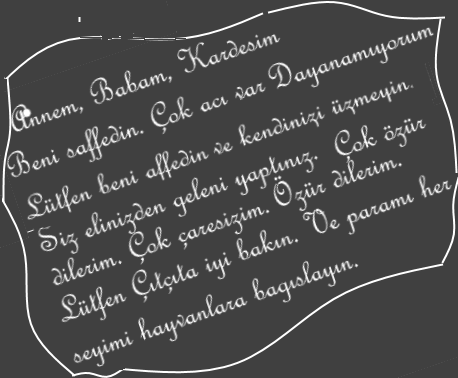 Annem, Babam, Kardesim
Beni saffedin. Çok acı var Dayanamıyorum
Lütfen beni affedin ve kendinizi üzmeyin.
Siz elinizden geleni yaptınız. Çok özür
dilerim. Çok çaresizim. Özür dilerim.
Lütfen Çıtçıta iyi bakın. Ve paramı her
seyimi hayvanlara bagıslayın.